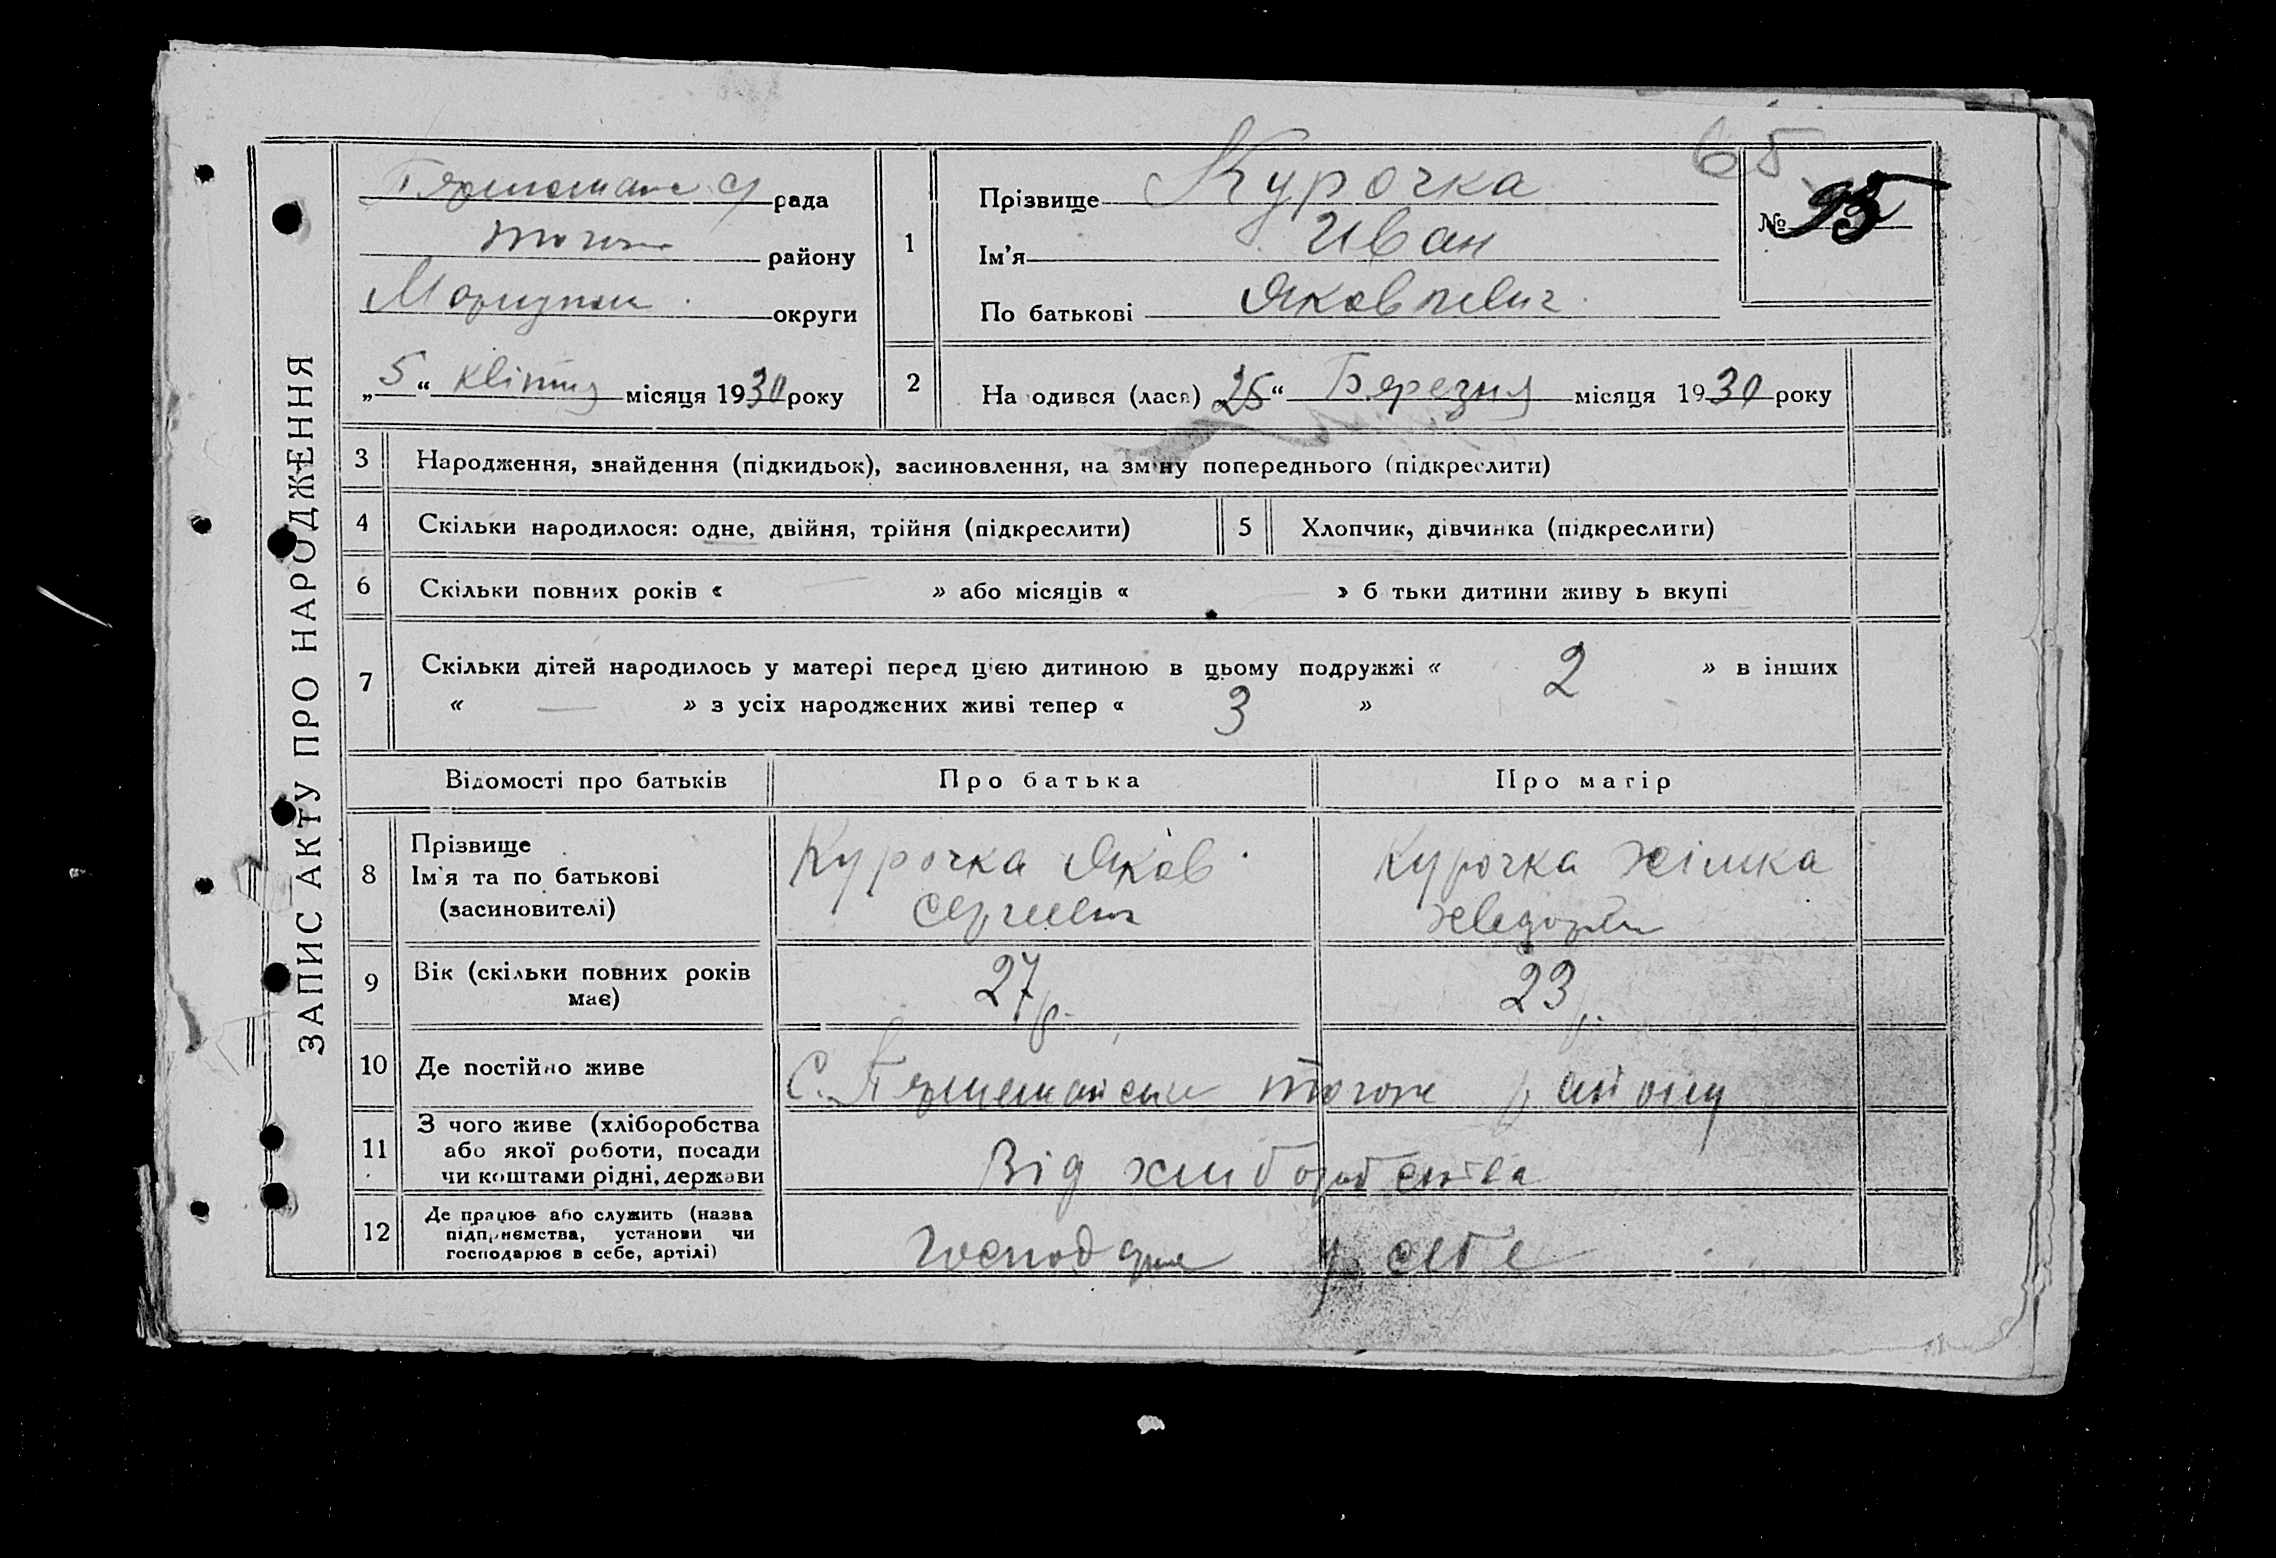 ЗАПИС АКТУ ПРО НАРОДЖЕННЯ
65
№ 95
рада
району
округи
„5“ квітня місяця 1930 року
1
Прізвище Курочка
Ім’я Иван
По батькові Яковлевич
2
На одився (лася) 25“ Бярезня місяця 1930 року
3 Народження, знайдення (підкидьок), засиновлення, на зміну попереднього (підкреслити)
4 Скільки народилося: одне, двійня, трійня (підкреслити)
5 Хлопчик, дівчинка (підкреслити)
6 Скільки повних років « — » або місяців « » б тьки дитини живу ь вкупі
7 Скільки дітей народилось у матері перед цією дитиною в цьому подружжі « 2 » в інших
« — » з усіх народжених живі тепер « 3 »
Відомості про батьків
Про батька
Про матір
8 Прізвище
Ім’я та по батькові
(засиновителі)
Курочка Яков
Сергиевич
Курочка
9 Вік (скільки повних років
має)
27 р.
23 р.
10 Де постійно живе
С. району
11 З чого живе (хліборобства
або якої роботи, посади
чи коштами рідні, держави
Від хлиборобства
12 Де працює або служить (назва
підприємства, установи чи
господарює в себе, артілі)
у себе